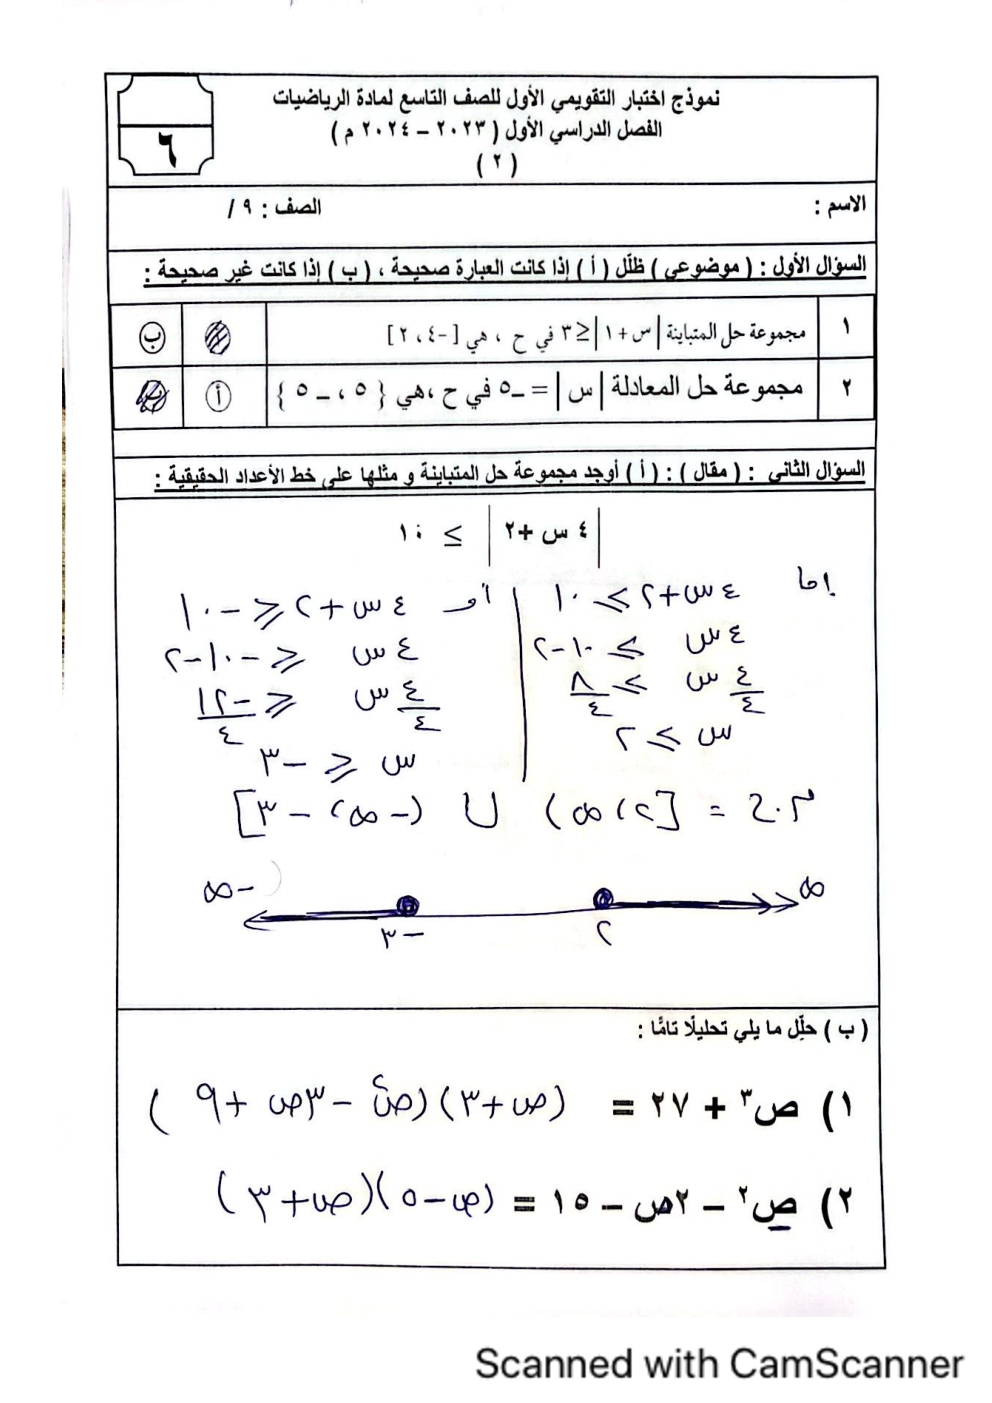 نموذج اختبار التقويمي الأول للصف التاسع لمادة الرياضيات
الفصل الدراسي الأول ( ٢٠٢٣ – ٢٠٢٤ م )
( ٢ )
٦
الاسم :
الصف : ٩ /
السؤال الأول : ( موضوعي ) ظلّل ( أ ) إذا كانت العبارة صحيحة ، ( ب ) إذا كانت غير صحيحة :
١ مجموعة حل المتباينة | س + ١ | ≤ ٣ في ح ، هي [ -٤ ، ٢ ] ب
٢ مجموعة حل المعادلة | س | = – ٥ في ح ،هي { ٥ ، – ٥ } أ ب
السؤال الثاني : ( مقال ) : ( أ ) أوجد مجموعة حل المتباينة و مثلها على خط الأعداد الحقيقية :
| ٤ س + ٢ | ≥ ١٠
إما ٤س + ٢ ≥ ١٠ أو ٤س + ٢ ≤ – ١٠
٤س ≥ ١٠ – ٢ ٤س ≤ – ١٠ – ٢
٤س/٤ ≥ ٨/٤ ٤س/٤ ≤ – ١٢/٤
س ≥ ٢ س ≤ – ٣
م.ح = [ ٢ ، ∞ ) ∪ ( – ∞ ، – ٣ ]
∞ – ∞
٢ – ٣
( ب ) حلّل ما يلي تحليلًا تامًا :
١) ص٣ + ٢٧ = ( ص + ٣ ) ( ص٢ – ٣ص + ٩ )
٢) ص٢ – ٢ص – ١٥ = ( ص – ٥ ) ( ص + ٣ )
Scanned with CamScanner